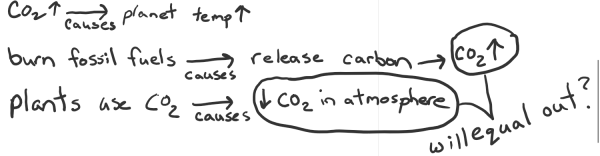 CO₂↑ → causes planet temp↑
burn fossil fuels → causes release carbon → CO₂↑
plants use CO₂ → causes ↓ CO₂ in atmosphere
will equal out?